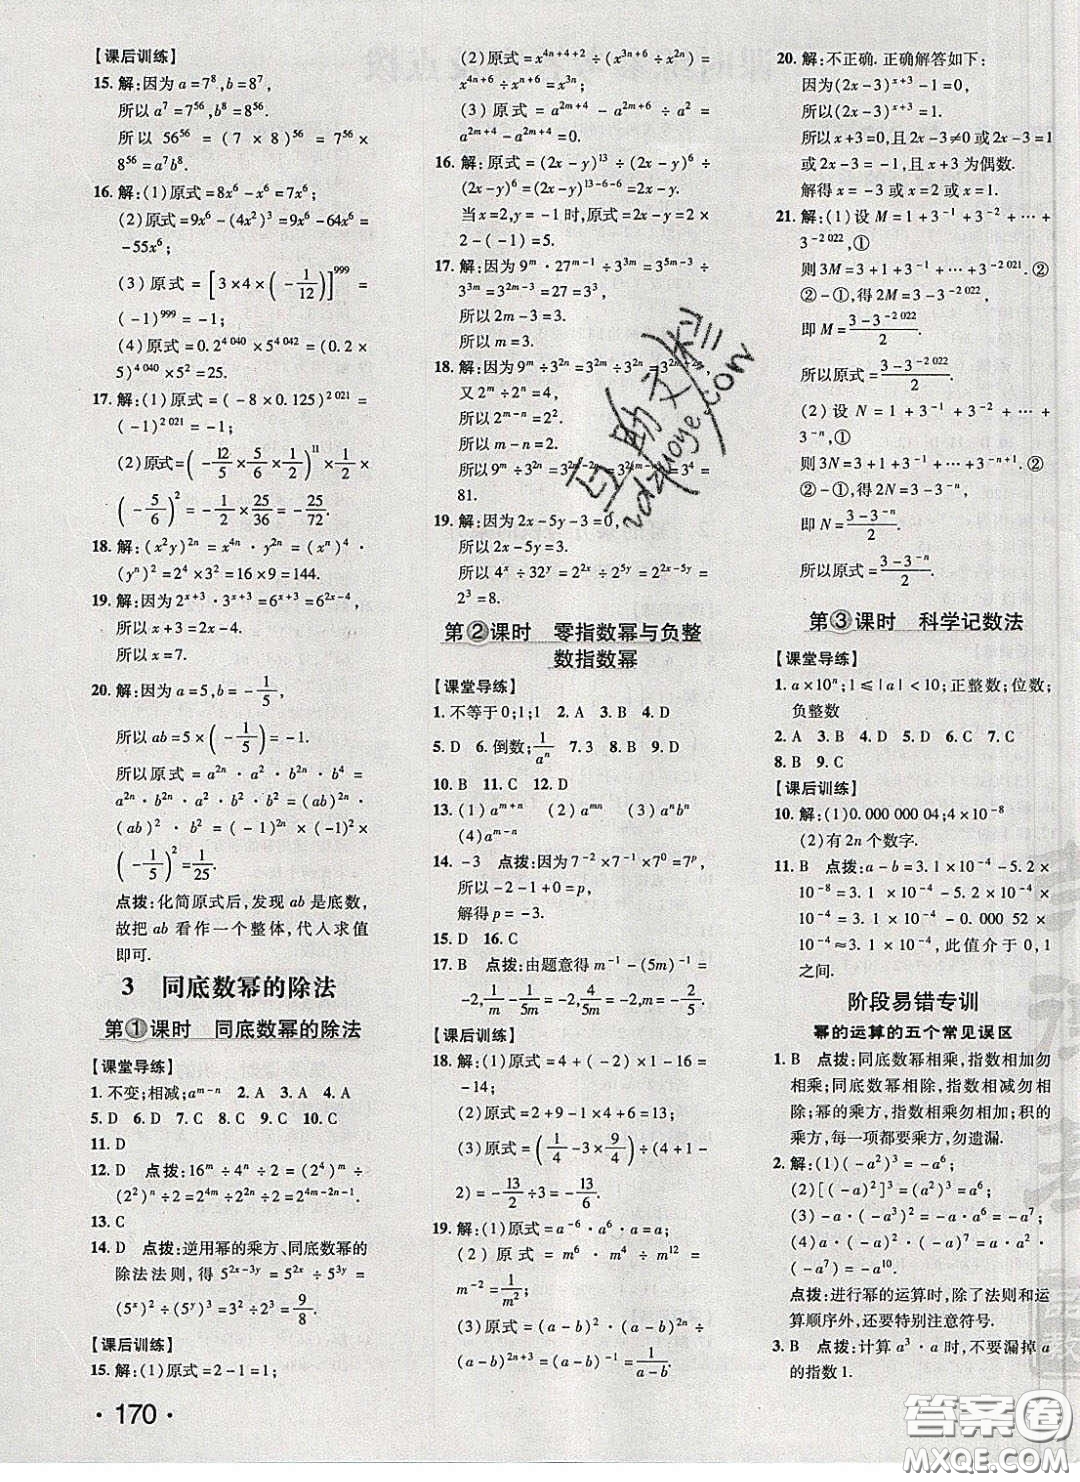 【课后训练】
15. 解:因为 a=7⁸,b=8⁷,
所以 a⁷=7⁵⁶,b⁸=8⁵⁶,
所以 56⁵⁶ = (7 × 8)⁵⁶ = 7⁵⁶ ×
8⁵⁶=a⁷b⁸.
16. 解:(1)原式=8x⁶-x⁶=7x⁶;
(2)原式=9x⁶-(4x²)³=9x⁶-64x⁶=
-55x⁶;
(3)原式=[3×4×(-1/12)]⁹⁹⁹=
(-1)⁹⁹⁹=-1;
(4)原式=0.2^{4 040}×5^{4 042}=(0.2×
5)^{4 040}×5²=25.
17. 解:(1)原式=(-8×0.125)^{2 021}=
(-1)^{2 021}=-1;
(2)原式=(-12/5×5/6×1/2)¹¹×1/2×
(-5/6)²=-1/2×25/36=-25/72.
18. 解:(x²y)²ⁿ=x⁴ⁿ·y²ⁿ=(xⁿ)⁴·
(yⁿ)²=2⁴×3²=16×9=144.
19. 解:因为 2^{x+3}·3^{x+3}=6^{x+3}=6^{2x-4},
所以 x+3=2x-4.
所以 x=7.
20. 解:因为 a=5,b=-1/5,
所以 ab=5×(-1/5)=-1.
所以原式=a²ⁿ·a²·b²ⁿ·b⁴=
a²ⁿ·b²ⁿ·a²·b²·b²=(ab)²ⁿ·
(ab)²·b²=(-1)²ⁿ×(-1)²×
(-1/5)²=(-1/5)²=1/25.
点拨:化简原式后,发现 ab 是底数,
故把 ab 看作一个整体,代入求值
即可.
3 同底数幂的除法
第①课时 同底数幂的除法
【课堂导练】
1. 不变;相减;a^{m-n} 2. A 3. A 4. A
5. D 6. D 7. D 8. C 9. C 10. C
11. D
12. D 点拨:16ᵐ÷4ⁿ÷2=(2⁴)ᵐ÷
(2²)ⁿ÷2=2^{4m}÷2^{2n}÷2=2^{4m-2n-1}.
13. C
14. D 点拨:逆用幂的乘方、同底数幂的
除法法则,得 5^{2x-3y}=5^{2x}÷5^{3y}=
(5ˣ)²÷(5ʸ)³=3²÷2³=9/8.
【课后训练】
15. 解:(1)原式=2-1=1;
· 170 ·
(2)原式=x^{4n+4+2}÷(x^{3n+6}÷xⁿ)=
x^{4n+6}÷x^{2n+6}=x^{2n};
(3)原式=a^{2m+4}-a^{2m+6}÷a²=
a^{2m+4}-a^{2m+4}=0.
16. 解:原式=(2x-y)¹³÷(2x-y)⁶÷
(2x-y)⁶=(2x-y)^{13-6-6}=2x-y.
当 x=2,y=-1 时,原式=2x-y=2×
2-(-1)=5.
17. 解:因为 9ᵐ·27^{m-1}÷3^{3m}=3^{5m-3}÷
3^{3m}=3^{2m-3}=27=3³,
所以 2m-3=3.
所以 m=3.
18. 解:因为 9ᵐ÷3^{2n}=3^{2m}÷3^{2n}=3^{2m-2n},
又 2ᵐ÷2ⁿ=4,
所以 2^{m-n}=2².
所以 m-n=2.
所以9ᵐ÷3^{2n}=3^{2m-2n}=3^{2(m-n)}=3⁴=
81.
19. 解:因为 2x-5y-3=0,
所以 2x-5y=3.
所以 4ˣ÷32ʸ=2^{2x}÷2^{5y}=2^{2x-5y}=
2³=8.
第②课时 零指数幂与负整
数指数幂
【课堂导练】
1. 不等于0;1;1 2. A 3. B 4. D
5. D 6. 倒数;1/aⁿ 7. 3 8. B 9. D
10. B 11. C 12. D
13. (1)a^{m+n} (2)a^{mn} (3)aⁿbⁿ
(4)a^{m-n}
14. -3 点拨:因为 7⁻²×7⁻¹×7⁰=7ᵖ,
所以 -2-1+0=p,
解得 p=-3.
15. D 16. C
17. B 点拨:由题意得 m⁻¹-(5m)⁻¹=
-2,1/m-1/5m=-2,4/5m=-2,m=-2/5.
【课后训练】
18. 解:(1)原式=4+(-2)×1-16=
-14;
(2)原式=2+9-1×4+6=13;
(3)原式=(1/4-3×9/4)÷(4+1-
2)=-13/2÷3=-13/6.
19. 解:(1)原式=a⁻⁶·a⁶·a=a;
(2)原式=m⁶·m⁴÷m¹²=
m⁻²=1/m²;
(3)原式=(a-b)^{2n}·(a-b)²÷
(a-b)^{2n+3}=(a-b)⁻¹=1/(a-b).
20. 解:不正确. 正确解答如下:
因为(2x-3)^{x+3}-1=0,
所以(2x-3)^{x+3}=1.
所以 x+3=0,且 2x-3≠0 或2x-3=1
或 2x-3=-1,且 x+3 为偶数.
解得 x=-3 或 x=2 或 x=1.
21. 解:(1)设 M=1+3⁻¹+3⁻²+…+
3^{-2 022},①
则 3M=3+1+3⁻¹+…+3^{-2 021}.②
②-①,得 2M=3-3^{-2 022},
即 M=(3-3^{-2 022})/2.
所以原式=(3-3^{-2 022})/2.
(2)设 N=1+3⁻¹+3⁻²+…+
3⁻ⁿ,①
则 3N=3+1+3⁻¹+…+3^{-n+1}.②
②-①,得 2N=3-3⁻ⁿ,
即 N=(3-3⁻ⁿ)/2.
所以原式=(3-3⁻ⁿ)/2.
第③课时 科学记数法
【课堂导练】
1. a×10ⁿ;1≤|a|<10;正整数;位数;
负整数
2. A 3. B 4. D 5. C 6. C 7. C
8. B 9. C
【课后训练】
10. 解:(1)0.000 000 04;4×10⁻⁸
(2)有 2n 个数字.
11. B 点拨:a-b=3.1×10⁻⁴-5.2×
10⁻⁸=3.1×10⁻⁴-5.2×10⁻⁴×
10⁻⁴=3.1×10⁻⁴-0.000 52×
10⁻⁴≈3.099×10⁻⁴,此值介于 0,1
之间.
阶段易错专训
幂的运算的五个常见误区
1. B 点拨:同底数幂相乘,指数相加勿
相乘;同底数幂相除,指数相减勿相
除;幂的乘方,指数相乘勿相加;积的
乘方,每一项都要乘方,勿遗漏.
2. 解:(1)(-a²)³=-a⁶;
(2)[(-a)²]³=(a²)³=a⁶;
(3)-a·(-a²)³=-a·a⁶=-a⁷;
(4)a·(-a)²·(-a)⁷=a·a²·
(-a⁷)=-a¹⁰.
点拨:进行幂的运算时,除了法则和运
算顺序外,还要特别注意符号.
3. B 点拨:计算 a³·a 时,不要漏掉 a
的指数 1.
答案圈
MXQE.COM